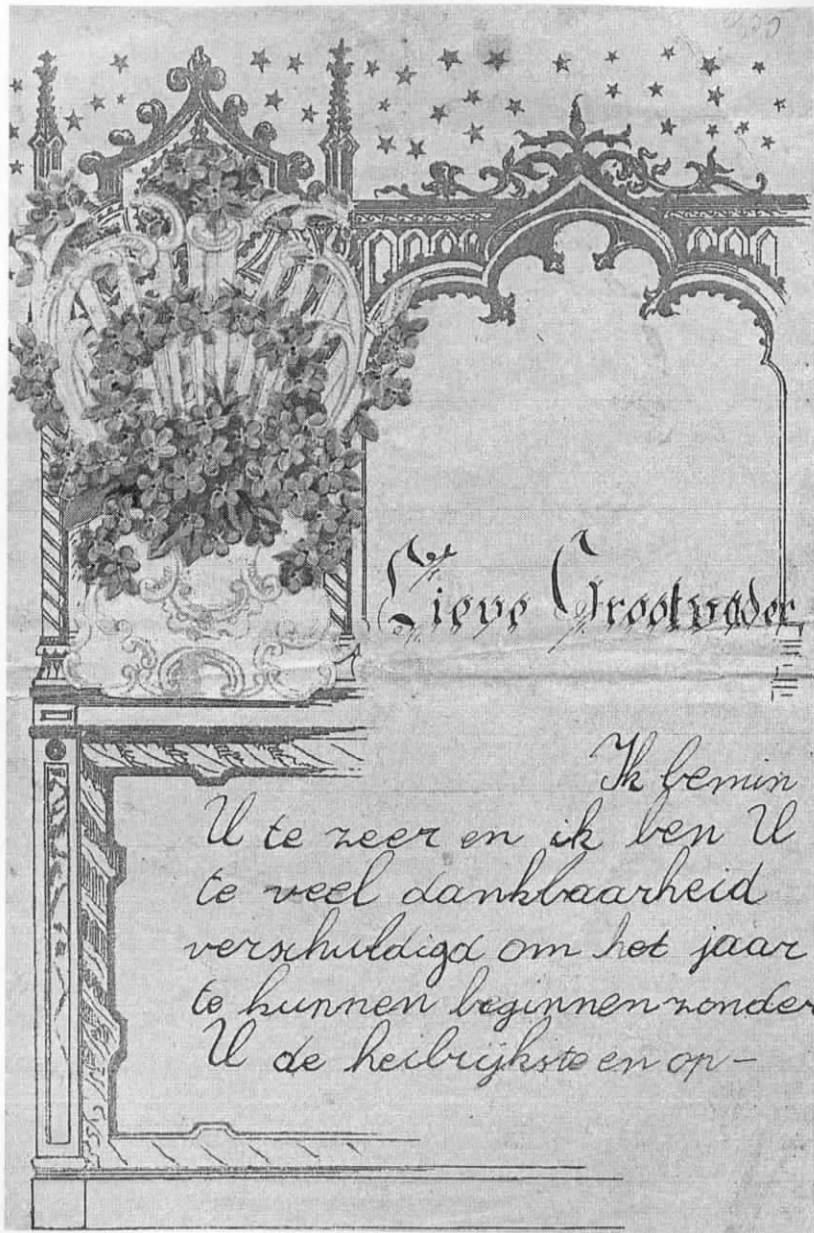 Lieve Grootvader
Ik bemin
U te zeer en ik ben U
te veel dankbaarheid
verschuldigd om het jaar
te kunnen beginnen zonder
U de heilrijkste en op-